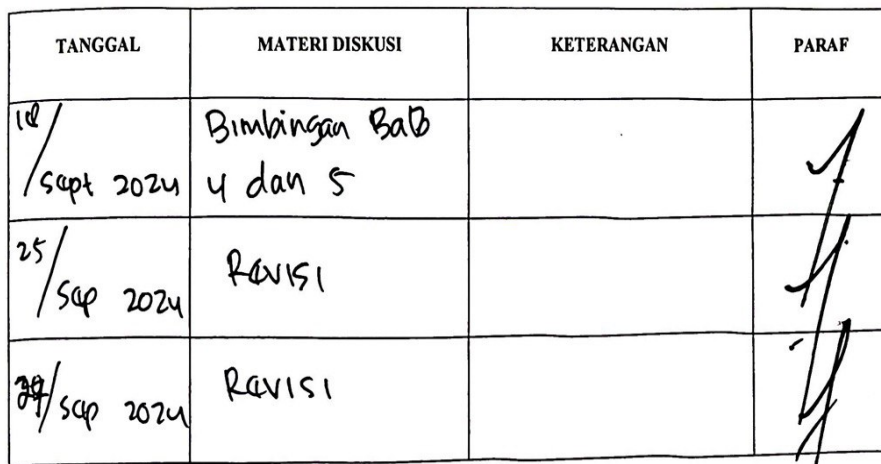 TANGGAL MATERI DISKUSI KETERANGAN PARAF
18/ Sept 2024 Bimbingan Bab
4 dan 5
25/ Sep 2024 Revisi
/ Sep 2024 Revisi